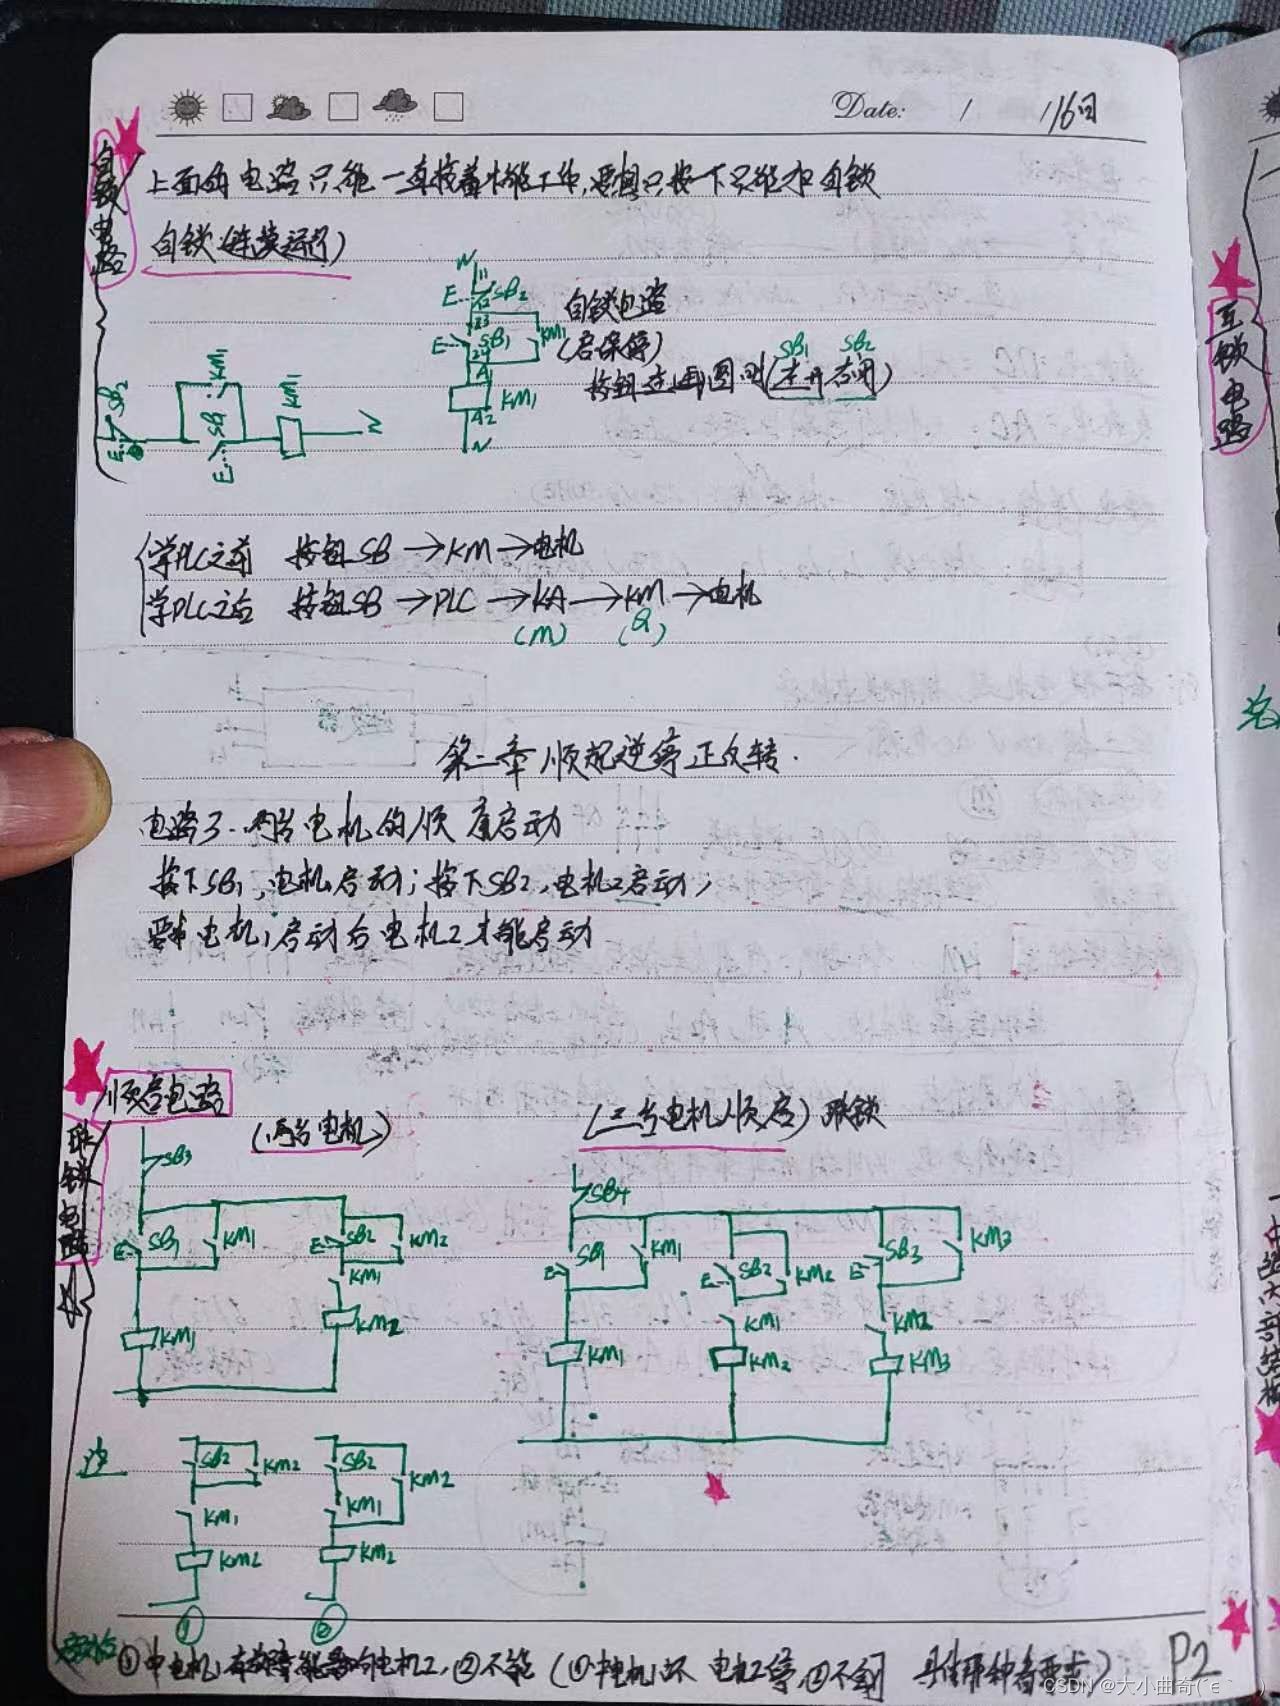 Date: / 1/6日
自锁电路
上面的电路只能一直按着才能工作,要想只按一下只能加自锁
自锁(连续运行)
N
11
E SB2
12
23
E SB1 KM1
24
A1
KM1
A2
N
自锁电路
(启保停)
SB1 SB2
按钮在画图时(左开右闭)
SB2 KM1 KM1
E SB1 N
E
学PLC之前 按钮SB→KM→电机
学PLC之后 按钮SB→PLC→KA→KM→电机
(M) (Q)
第二章 顺起逆停正反转.
电路3. 两台电机的顺序启动
按下SB1,电机1启动;按下SB2,电机2启动;
要求电机1启动后电机2才能启动
顺启电路
联锁电路
(两台电机)
(三台电机顺启) 联锁
SB3
E SB1 KM1 E SB2 KM2
KM1
KM1 KM2
SB4
E SB1 KM1 E SB2 KM2 E SB3 KM3
KM1 KM2
KM1 KM2 KM3
注
SB2 KM2 SB2 KM2
KM1 KM1
KM2 KM2
① ②
①中电机1有故障能影响电机2,②不能(①中电机1坏 电机2停,②不会
P2
互锁电路
CSDN @大小曲奇